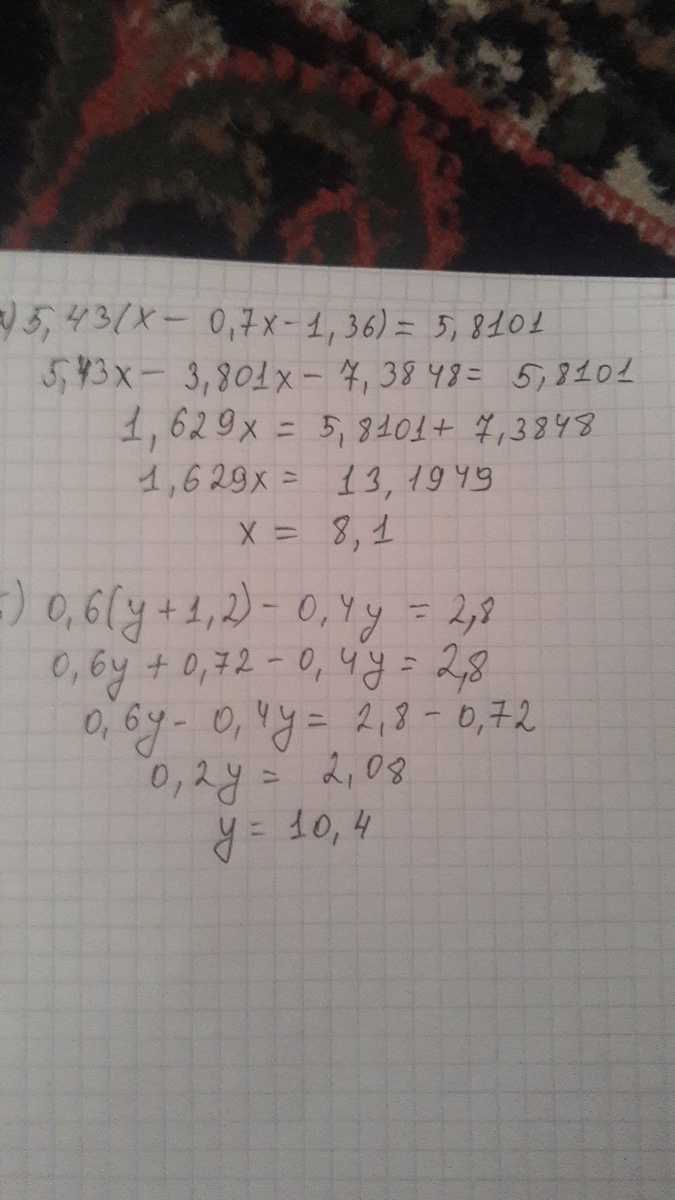 5,43(x - 0,7x - 1,36) = 5,8101
5,43x - 3,801x - 7,3848 = 5,8101
1,629x = 5,8101 + 7,3848
1,629x = 13,1949
x = 8,1
) 0,6(y + 1,2) - 0,4y = 2,8
0,6y + 0,72 - 0,4y = 2,8
0,6y - 0,4y = 2,8 - 0,72
0,2y = 2,08
y = 10,4